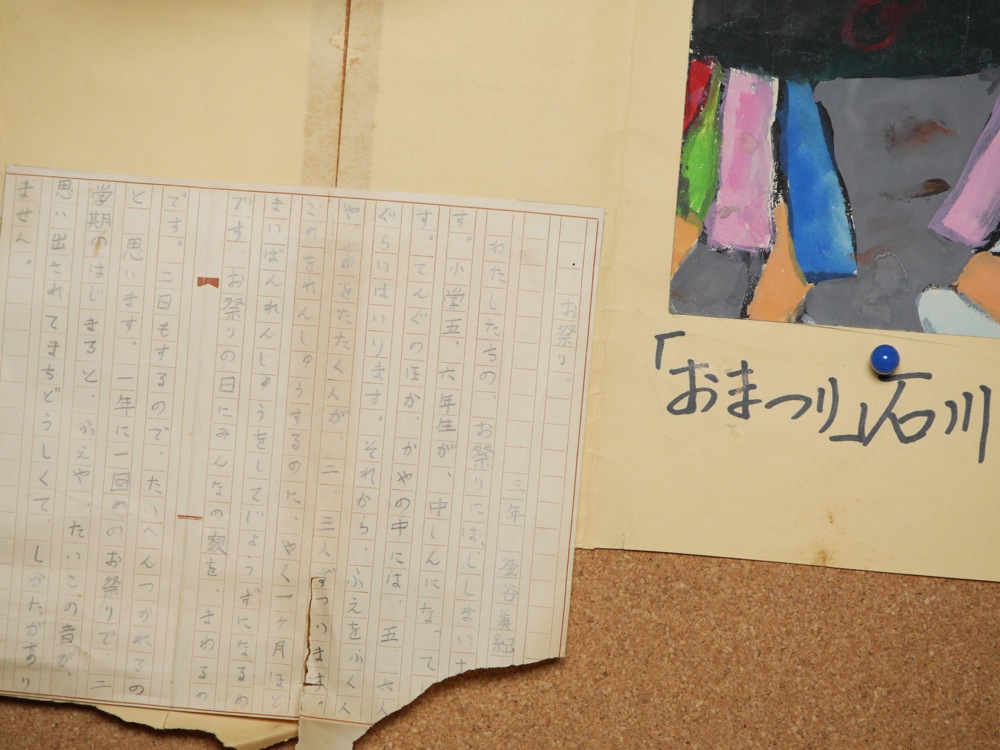 お祭り。
三年 谷美
わたしたちの、お祭りには、ししまいで
す。小学五、六年生が、中しんになって
す。てんぐのほか、かやの中には、五、六人
ぐらいはいります。それから、ふえをふく人
や、かねをたたく人が、二、三人ずついます。
これをれんしゅうするのに、やく一ヶ月ほど
まいばんれんしゅうをしてじょうずになるの
です。お祭りの日にみんなの家を、まわるの
です。二日もするので、たいへんつかれるの
と、思います。一年に一回ののお祭りで、二
学期のはじまると、ふえや、たいこの音が、
思い出されてまちどうしくて、しかたがあり
ません。
「おまつり」石川